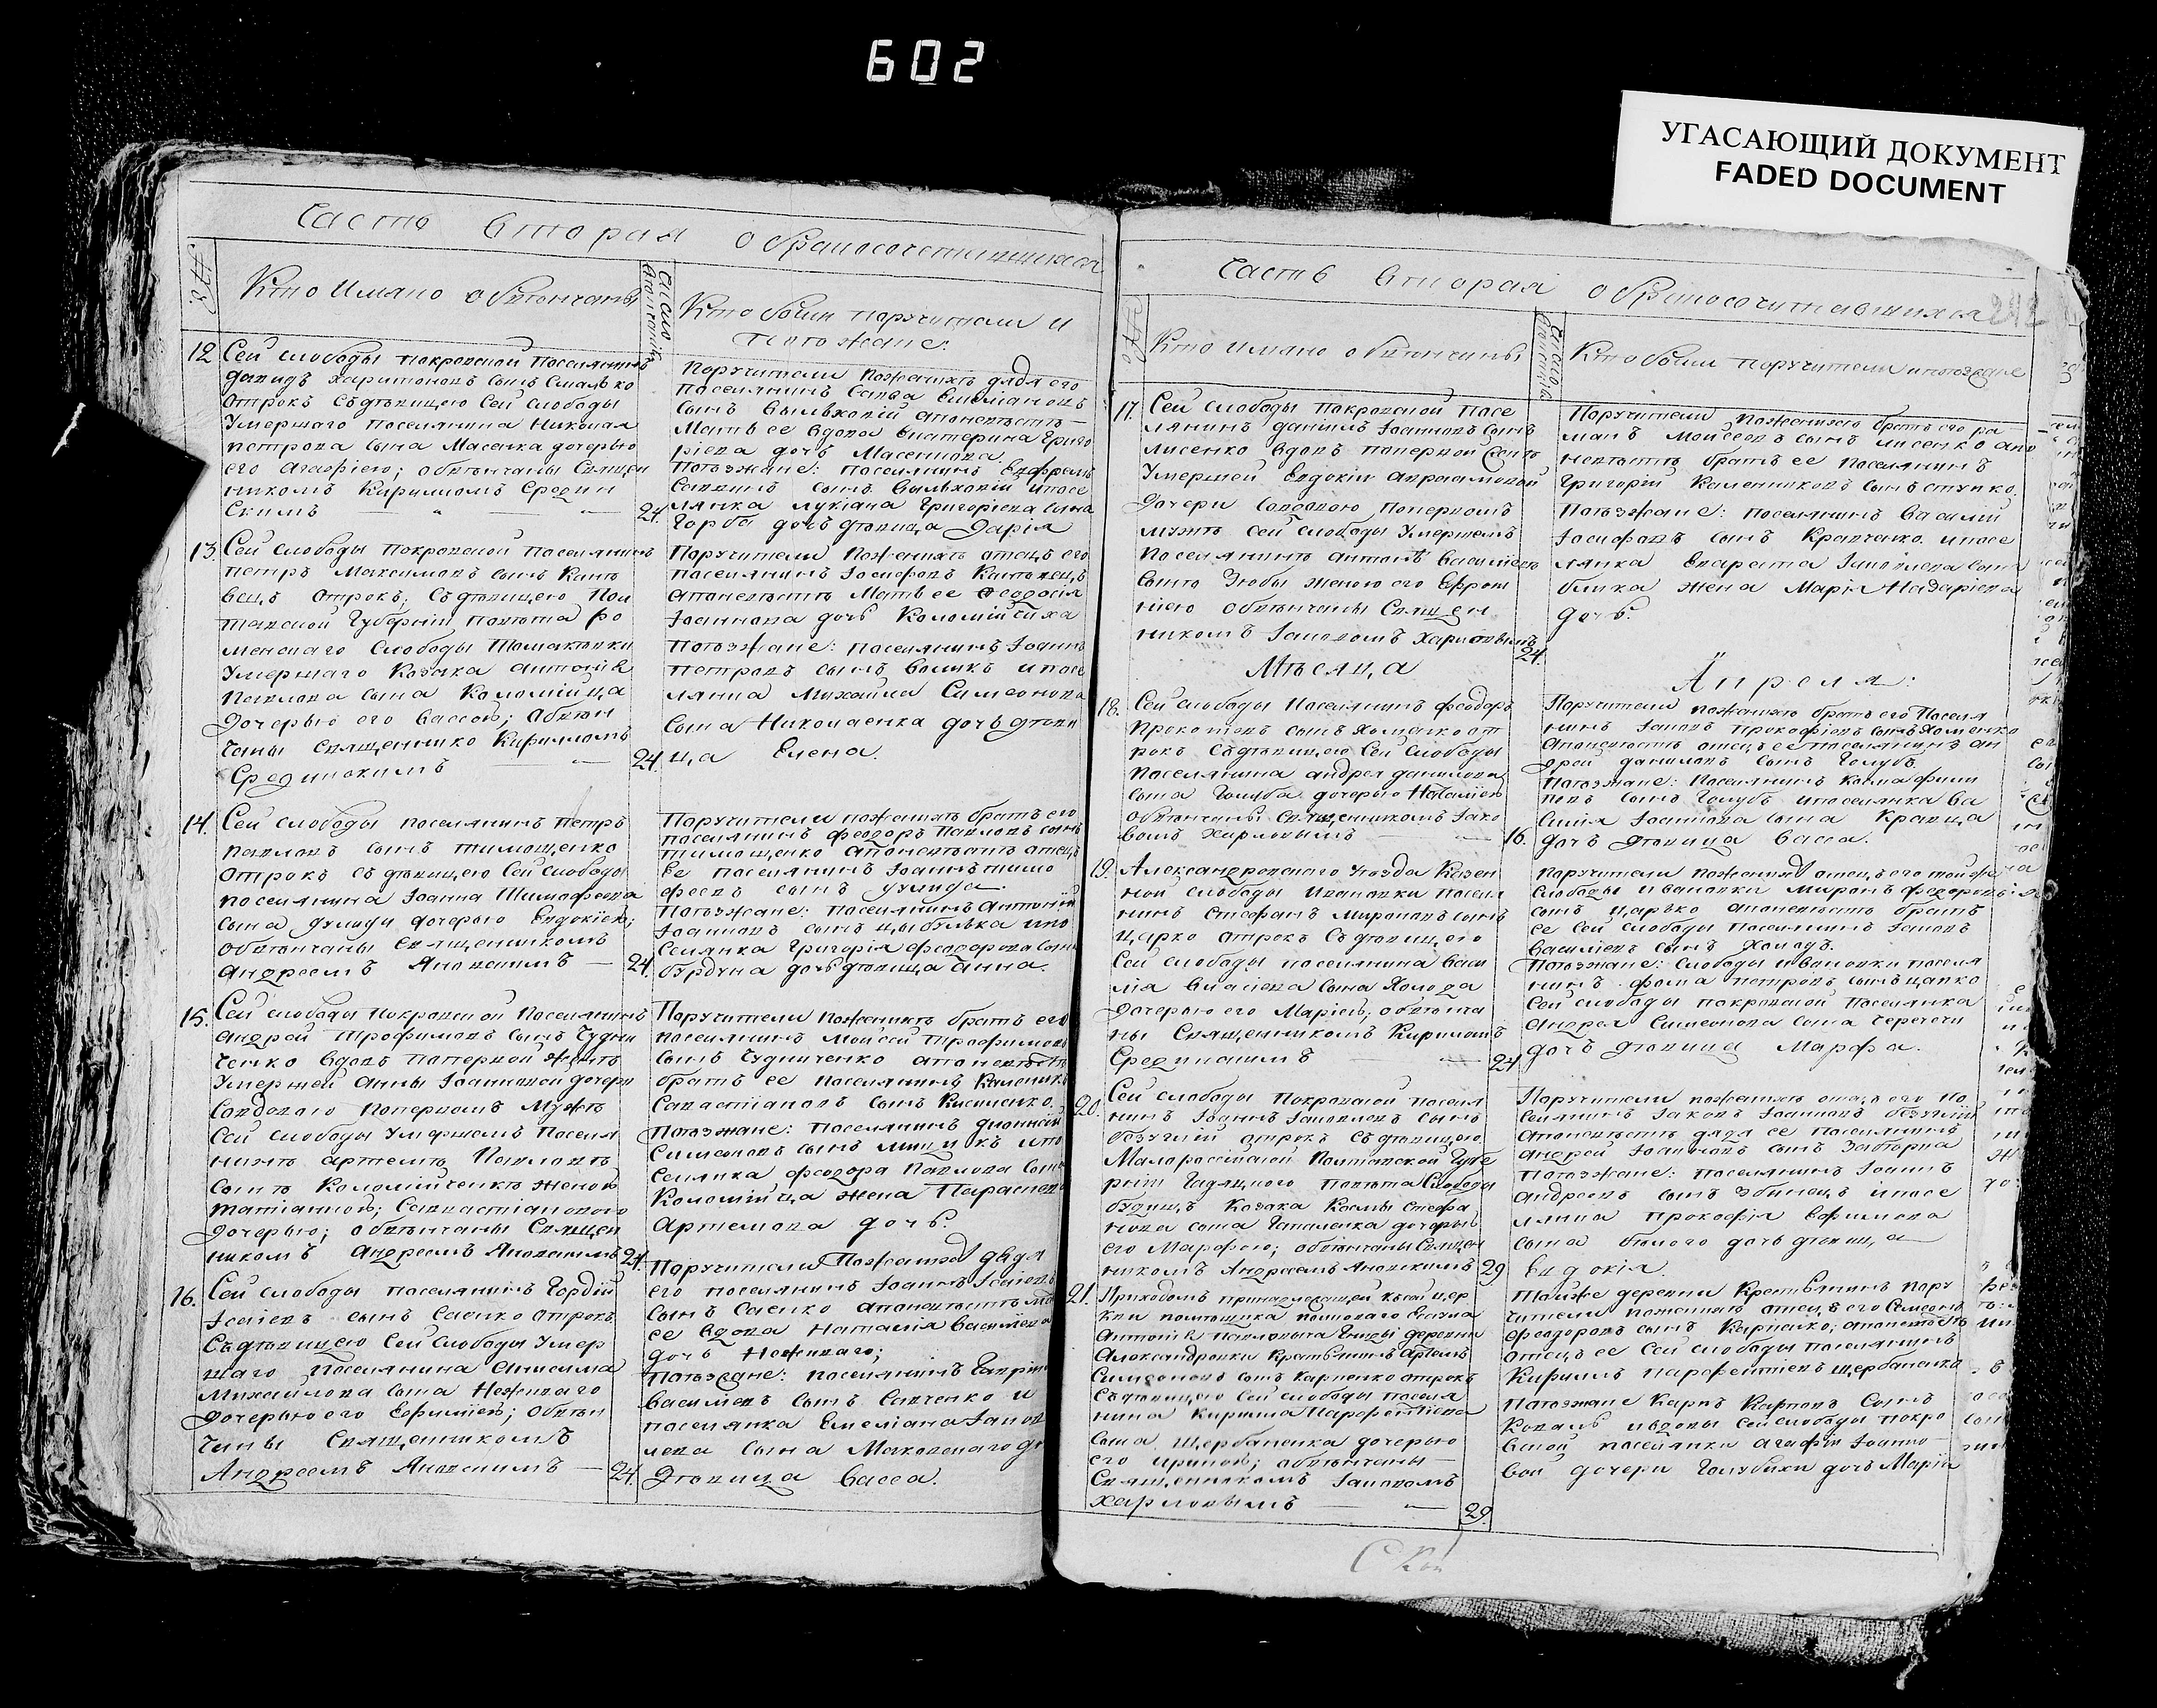 602
УГАСАЮЩИЙ ДОКУМЕНТ
FADED DOCUMENT
Часть Вторая о бракосочетавшихся
Кто Имяно обвѣнчаны
Число
Кто были поручители и
поѣзжане.
12 Сей слободы покровской Поселянинъ
давидъ Харитоновъ сынъ Смалько
Отрокъ Съ дѣвицею Сей Слободы
Умершаго поселянина Николая
петрова сына Масенка дочерью
его Агафіею; обвѣнчаны Священ
никомъ Кириломъ Средин
скимъ 24.
Поручители Поженихѣ дядя его
поселянинъ Савва
сынъ апоневѣстѣ
Мать ее вдова Екатерина Григо
ріева дочь Масенкова
Поѣзжане: поселянинъ Евфремъ
Саввинъ сынъ ипосе
лянка Лукіана Григоріева сына
Горба дочь дѣвица Дарія
13. Сей слободы покровской поселянинъ
петръ Максимовъ сынъ Канѣ
вецъ Отрокъ; Съ дѣвицею Пол
тавской Губерніи повѣта Ро
менскаго Слободы
Умершаго Козака Антонія
Павлова сына Коломійца
дочерью его Вассою; Обвѣн
чаны Священнико Кириломъ
Срединскимъ 24.
Поручители Пожениху отецъ его
поселянинъ Іосифовъ Канѣвецъ
апоневѣстѣ Мать ее Ѳеодосія
Іоаннова дочь Коломійчиха
Поѣзжане: поселянинъ Іоаннъ
петровъ сынъ Великъ ипосе
лянина Михайла Симеонова
сына Николаенка дочь дѣви
ца Елена.
14. Сей слободы поселянинъ Петръ
павловъ сынъ тимошенко
Отрокъ Съ дѣвицею Сей Слободы
поселянина Іоанна Тимофеева
сына дочерью Евдокіею;
обвѣнчаны Священникомъ
Андреемъ Яновскимъ 24.
Поручители пожениху братъ его
поселянинъ феодоръ Павловъ сынъ
тимошенко апоневѣстѣ отецъ
ее поселянинъ Іоаннъ тимо
феевъ сынъ
Поѣзжане: поселянинъ Антоній
Іоанновъ сынъ цыбулька ипо
селянка Григорія феодорова сына
бурдуна дочь дѣвица Анна.
15. Сей слободы Покровской Поселянинъ
андрей Трофимовъ сынъ Чудни
ченко вдовъ поперной женѣ
Умершей Анны Іоанновой дочери
Совдовою поперномъ Мужѣ
Сей слободы Умершемъ поселя
нинѣ Артемѣ Павловѣ
сынѣ Коломійченкѣ женой
татіанной; Севастіановою
дочерью; обвѣнчаны Священ
никомъ Андреемъ Яновскимъ 24.
Поручители Пожениху братъ его
поселянинъ Моисей Трофимовъ
сынъ Чудниченко апоневѣстѣ
братъ ее поселянинъ Каленикъ
Севастіановъ сынъ
Поѣзжане: поселянинъ Діонисій
Симеоновъ сынъ ипо
селянка феодора Павлова сына
Коломійца жена Параскева
Артемова дочь.
16. Сей слободы поселянинъ Гордій
Ісаіевъ сынъ Саенко отрокъ
Съ дѣвицею Сей Слободы Умер
шаго Поселянина Анисима
Михайлова сына Неженаго
дочерью его Евфиміею; Обвѣн
чаны Священникомъ
Андреемъ Яновскимъ 24.
Поручители Пожениху дядя
его поселянинъ Іоаннъ Ісаіевъ
сынъ Саенко апоневѣстѣ мать
ее вдова Наталія Василіева
дочь Неженаго;
Поѣзжане: поселянинъ Гаврило
Василіевъ сынъ Савченко и
поселянка Емеліана Іаков
лева сына Маковскаго до
дѣвица Васса.
Часть Вторая о бракосочитавшихся 242
Кто Имяно обвѣнчаны
Число
Кто были поручители ипоѣзжане
17. Сей слободы Покровской Посе
лянинъ даніилъ Іоанновъ сынъ
лисенко вдовъ поперной женѣ
Умершей Евдокіи Авраамовой
дочери Совдовою поперномъ
мужѣ Сей слободы Умершемъ
поселянинѣ Антонѣ Василіевѣ
сынѣ Зюбы женою его Ефроси
ніею обвѣнчаны Священ
никомъ Іаковомъ Харловымъ 24.
Поручители Пожениху братъ его ро
манъ Моисеевъ сынъ лисенко апо
невѣстѣ братъ ее поселянинъ
Григорій Калениковъ сынъ ступко.
Поѣзжане: поселянинъ Василій
Іосифовъ сынъ Кравченко ипосе
лянка Евграфа Іаковлева сына
блика жена Марія Назаріева
дочь.
Мѣсяца Апреля:
18. Сей слободы Поселянинъ феодоръ
Прокопіевъ сынъ Хоменко от
рокъ Съ дѣвицею Сей слободы
поселянина андрея данилова
сына Голуба дочерью Наталіею
обвѣнчаны Священникомъ Іако
вомъ Харловымъ 16.
Поручители пожениху братъ его Поселя
нинъ Іаковъ Прокофіевъ сынъ Хоменко
апоневѣстѣ отецъ ее поселянинъ ан
дрей даниловъ сынъ Голубъ.
Поѣзжане: Поселянинъ Козма фили
повъ сынъ Голубъ ипоселянка Ва
силія Іоаннова сына Кравца
дочь дѣвица Васса.
19. Александровского уѣзда Казен
ной слободы Ивановки поселя
нинъ Стефанъ Мироновъ сынъ
царко отрокъ Съ дѣвицею
Сей слободы поселянина Васи
лія Власіева сына Холода
дочерью его Маріею; обвѣнча
ны Священникомъ Кириломъ
Срединскимъ 24
поручители пожениху отецъ его той же
слободы Ивановки Миронъ феодоровъ
сынъ царько апоневѣстѣ братъ
ее Сей слободы поселянинъ Іаковъ
Василіевъ сынъ Холодъ.
Поѣзжане: Слободы ивановки поселя
нинъ фома петровъ сынъ цапко
Сей слободы покровской Поселянка
Андрея Симеонова сына Черечеч
дочь дѣвица Марфа.
20. Сей слободы Покровской поселя
нинъ Іоаннъ Іаковлевъ сынъ
безуглій отрокъ Съ дѣвицею
Малоросійской Полтавской Губе
рніи Гадяцкого Повѣта Слободы
будищъ Козака Космы Стефа
нова сына Гапаленка дочерью
его Марфою; обвѣнчаны Священ
никомъ Андреемъ Яновскимъ 29
Поручители пожениху отецъ его по
селянинъ Іаковъ Іоанновъ безуглій
апоневѣстѣ дядя ее поселянинъ
андрей Іоанновъ сынъ
поѣзжане: поселянинъ Іоаннъ
Андреевъ сынъ ипосе
лянина Прокофія Ефимова
сына бѣлого дочь дѣвица
Евдокія.
21. Приходомъ принадлежащей къ сей цер
кви помѣщика
деревни
Александровки Крестьянинъ Артемъ
Симеоновъ сынъ Карпенко отрокъ
Съ дѣвицею Сей слободы поселя
нина Кирила Парфентіева
сына Щербаненка дочерью
его ириною; обвѣнчаны
Священникомъ Іаковомъ
Харловымъ 29.
Тойже деревни Крестьянинъ пору
чители пожениху отецъ его Симеонъ
феодоровъ сынъ Карпенко; апоневѣстѣ
отецъ ее Сей слободы поселянинъ
Кирилъ парфентіевъ щербаненко
поѣзжане Карпъ Карповъ Сынъ
Коваль ивдовы Сей слободы покро
вской поселянки агафіи Іоанно
вой дочери Голубихи дочь Марія